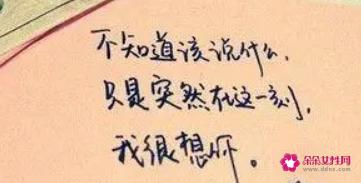 不知道该说什么，
只是突然在这一刻，
我很想你。
朵朵女性网
www.ddnx.com